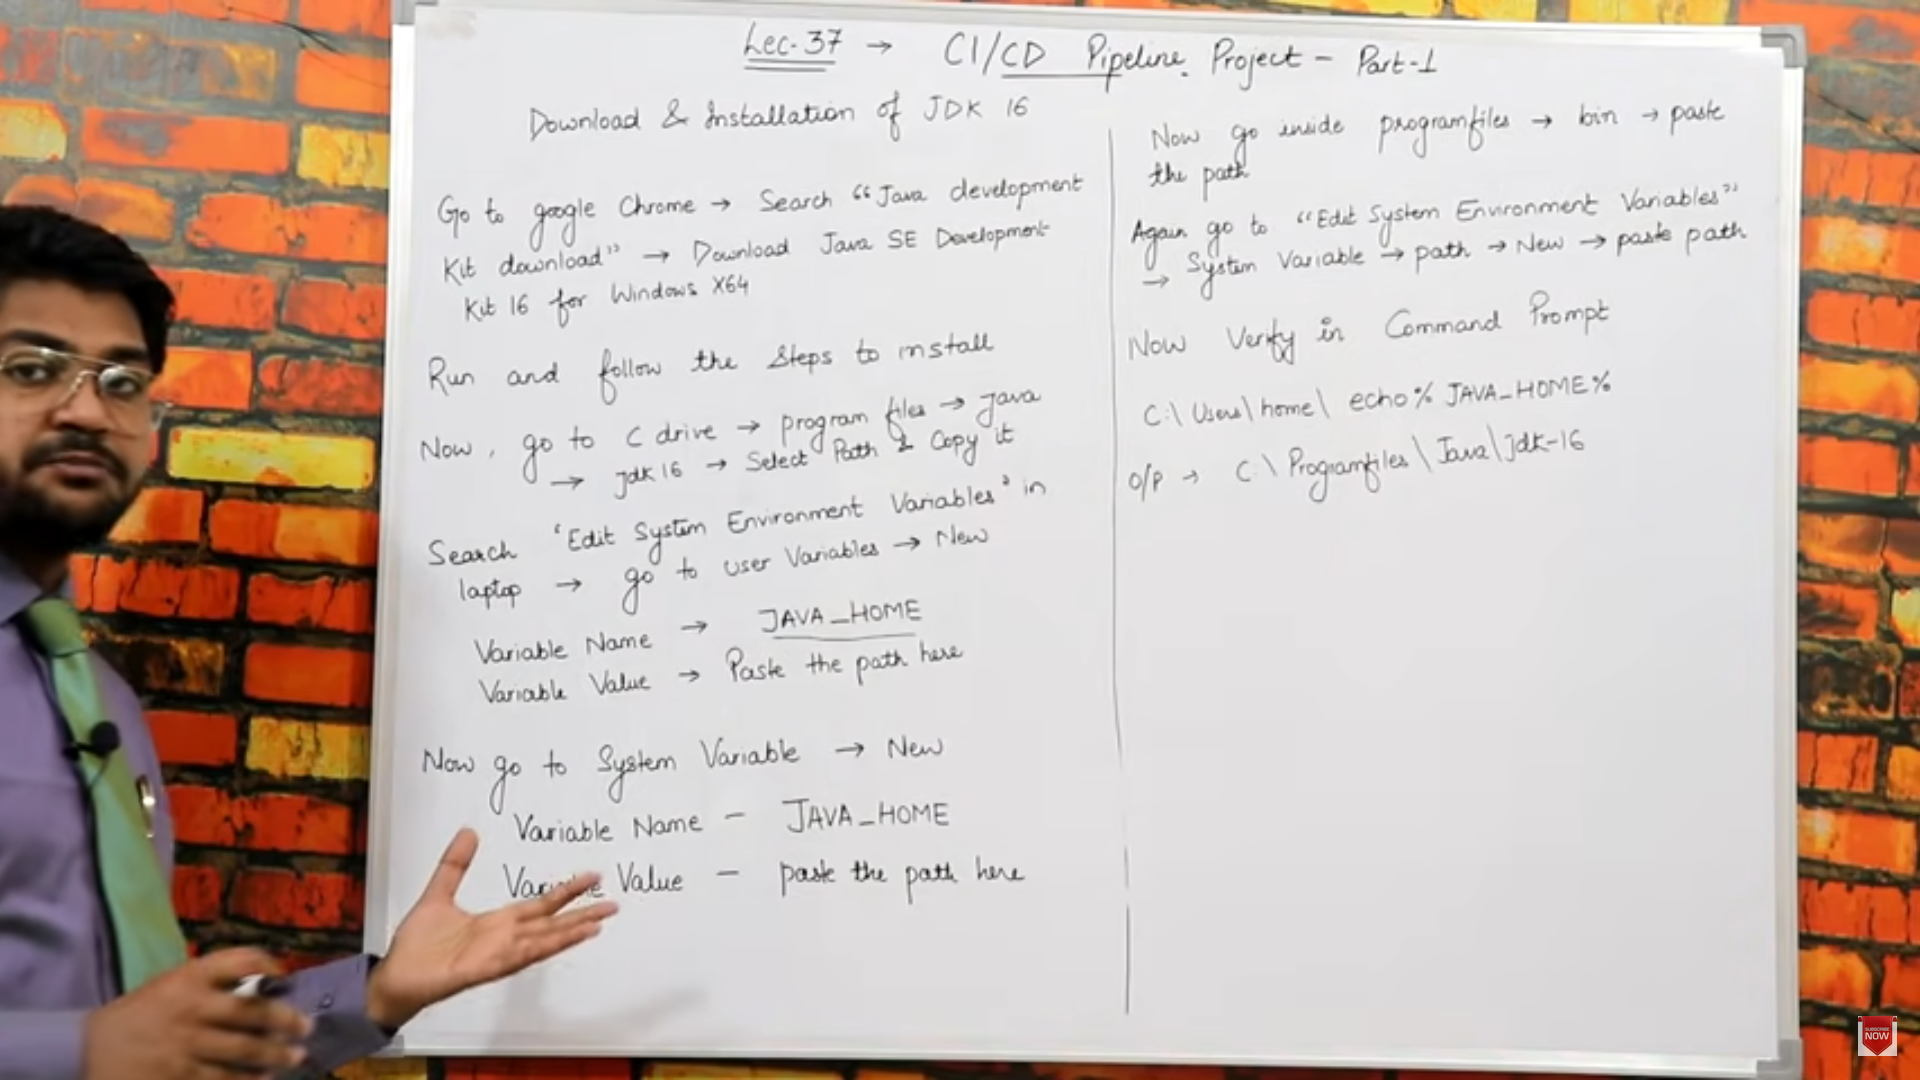 Lec-37 → CI/CD Pipeline Project - Part-1
Download & Installation of JDK 16
Go to google Chrome → Search “Java development
Kit download” → Download Java SE Development
Kit 16 for Windows X64
Run and follow the Steps to install
Now, go to C drive → program files → java
→ jdk 16 → Select Path & Copy it
Search ‘Edit System Environment Variables’ in
laptop → go to user Variables → New
Variable Name → JAVA_HOME
Variable Value → Paste the path here
Now go to System Variable → New
Variable Name - JAVA_HOME
Variable Value - paste the path here
Now go inside programfiles → bin → paste
the path
Again go to “Edit System Environment Variables”
→ System Variable → path → New → paste path
Now Verify in Command Prompt
C:\Users\home\ echo% JAVA_HOME%
O/P → C:\Programfiles\Java\jdk-16
SUBSCRIBE
NOW